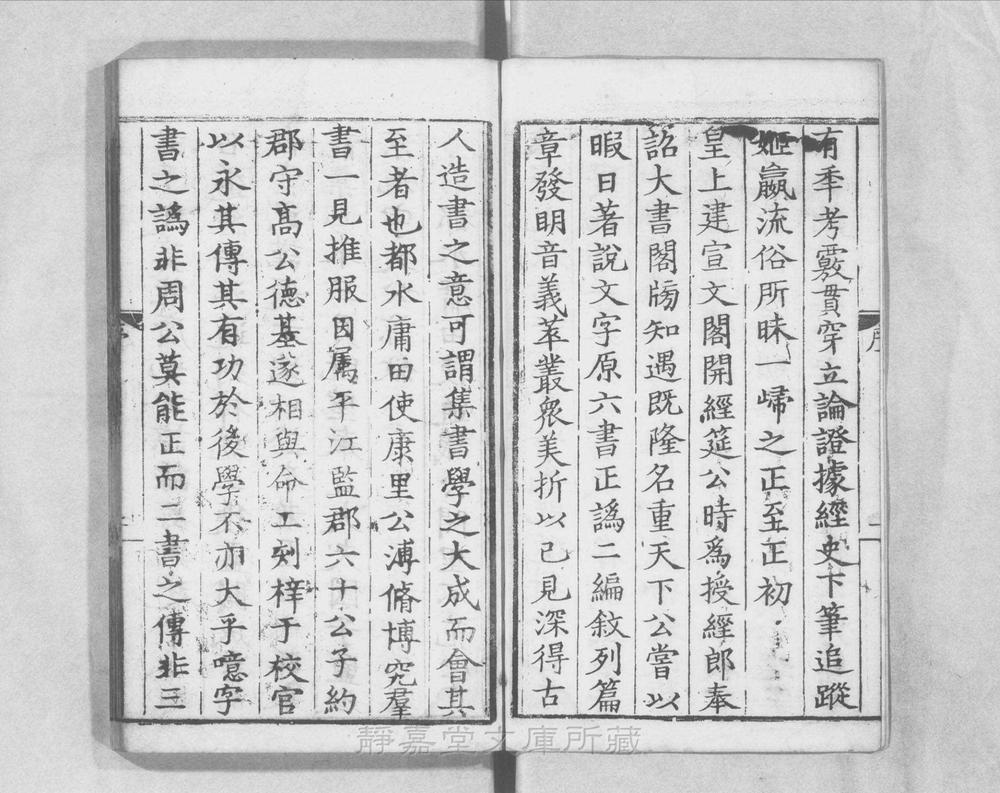 有年考覈貫穿立論證據經史下筆追蹤
姬嬴流俗所昧一歸之正至正初
皇上建宣文閣開經筵公時爲授經郎奉
詔大書閣牓知遇既隆名重天下公嘗以
暇日著說文字原六書正譌二編敘列篇
章發明音義萃叢衆美折以己見深得古
人造書之意可謂集書學之大成而會其
至者也都水庸田使康里公溥脩博究羣
書一見推服因属平江監郡六十公子約
郡守高公德基遂相與命工刻梓于校官
以永其傳其有功於後學不亦大乎噫字
書之譌非周公莫能正而二書之傳非三
序
二
靜嘉堂文庫所藏